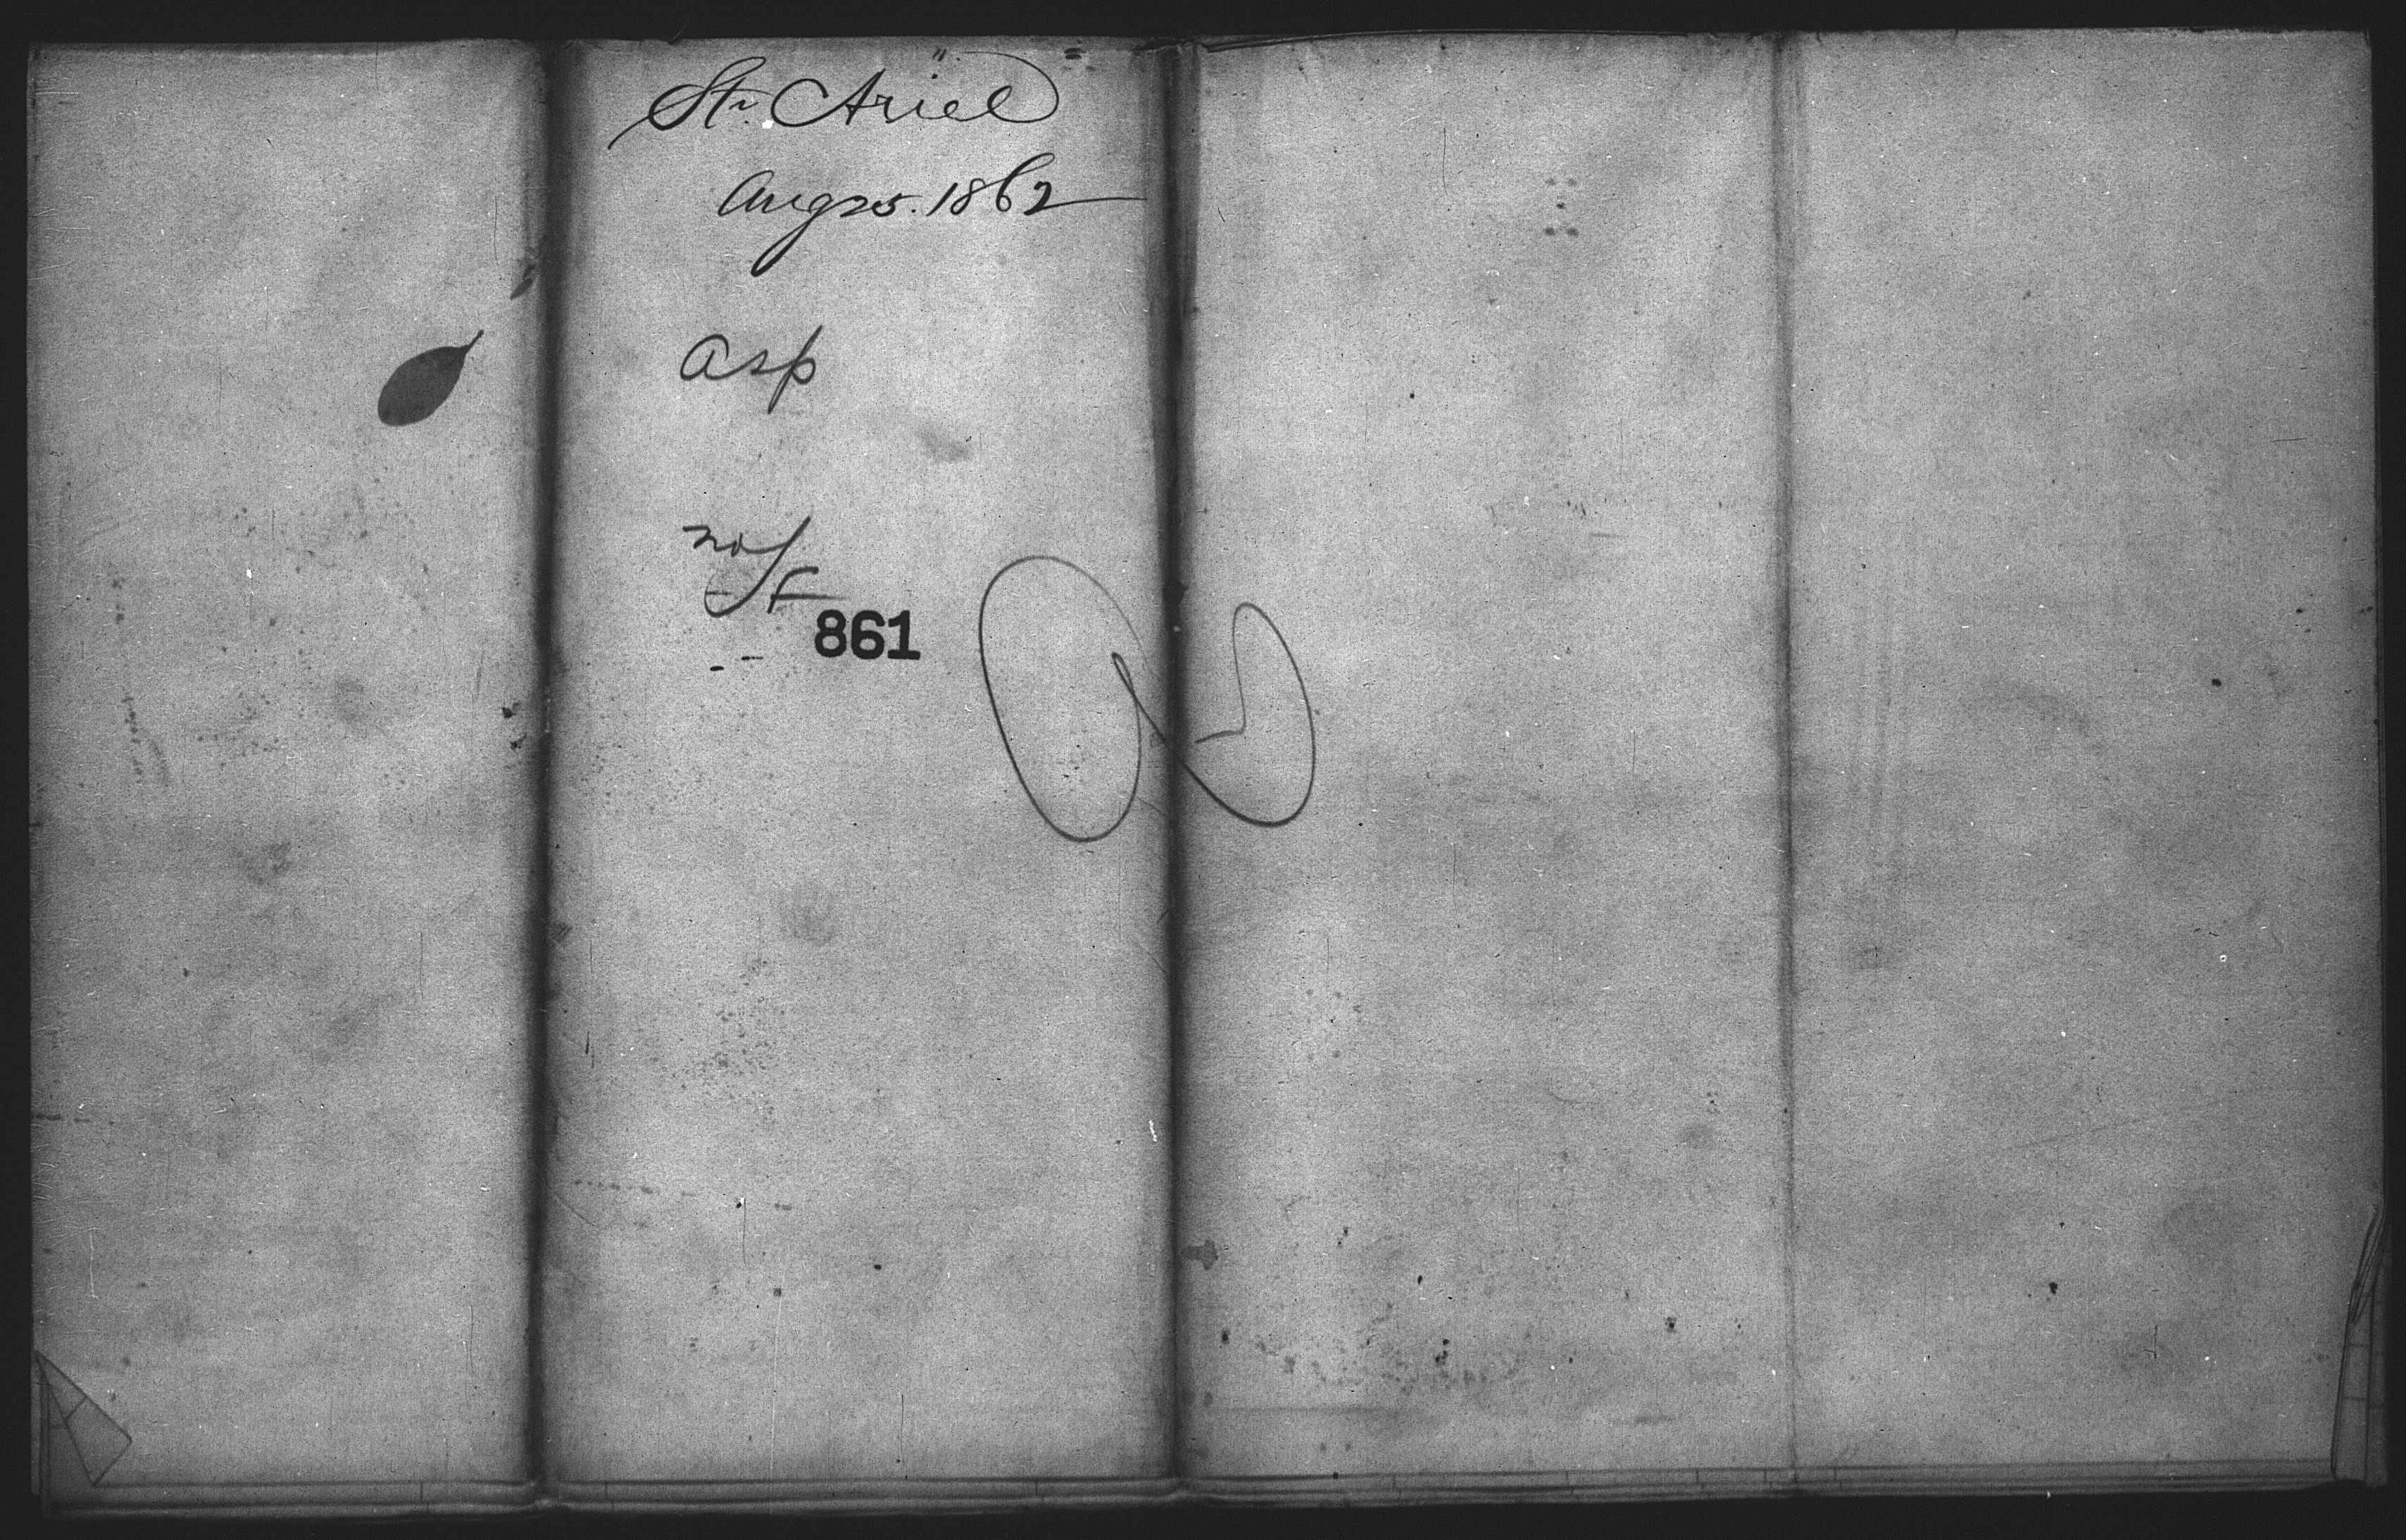 Str. Ariel
Aug 25. 1862
Asp
no/f
861